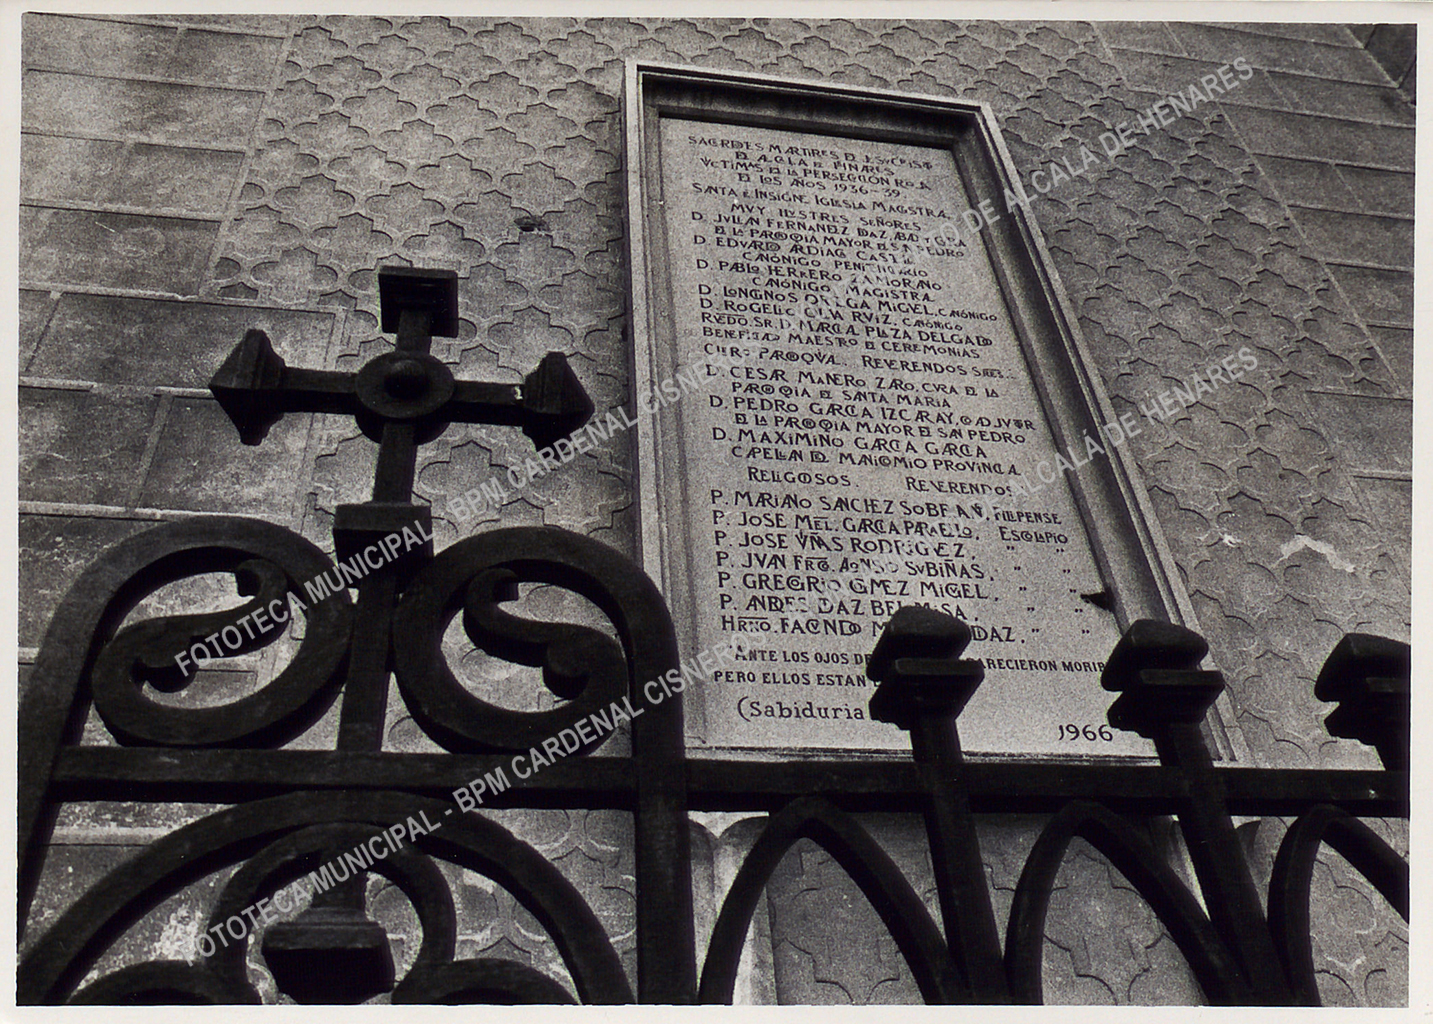 SACERDOTES MARTIRES DE JESUCRISTO
DE ALCALA DE HENARES
VICTIMAS DE LA PERSECUCIÓN ROJA
DE LOS AÑOS 1936-39.
SANTA E INSIGNE IGLESIA MAGISTRAL.
MUY ILUSTRES SEÑORES
D. JULIAN FERNANDEZ DIAZ, ABAD Y CURA
DE LA PARROQUIA MAYOR DE SAN PEDRO
D. EDUARDO ARDIACA CASTELL
CANÓNIGO PENITENCIARIO
D. PABLO HERRERO ZAMORANO
CANÓNIGO MAGISTRAL
D. LONGINOS ORTEGA MIGUEL, CANÓNIGO
D. ROGELIO OLIVA RUIZ, CANÓNIGO
RVEDO. SR. D. MARCIAL PLAZA DELGADO
BENEFICIADO MAESTRO DE CEREMONIAS
CLERO PARROQUIAL. REVERENDOS SRES.:
D. CESAR MANERO ZARO, CURA DE LA
PARROQUIA DE SANTA MARIA
D. PEDRO GARCIA IZCARAY, COADJUTOR
DE LA PARROQUIA MAYOR DE SAN PEDRO
D. MAXIMINO GARCIA GARCIA
CAPELLAN DEL MANICOMIO PROVINCIAL
RELIGIOSOS. REVERENDOS
P. MARIANO SANCHEZ, FILIPENSE
P. JOSE MEL. GARCIA PARADELLO, ESCOLAPIO
P. JOSE VIÑAS RODRIGUEZ, " "
P. JUAN FRCO. ALONSO SUBIÑAS, " "
P. GREGORIO GOMEZ MIGUEL, " "
P. ANDRES DIAZ BERMEOSA, " "
HRNO. FACUNDO DIAZ, " "
"ANTE LOS OJOS DE PARECIERON MORIR
PERO ELLOS ESTAN
(Sabiduria
1966
FOTOTECA MUNICIPAL - BPM CARDENAL CISNEROS AYUNTAMIENTO DE ALCALÁ DE HENARES
FOTOTECA MUNICIPAL - BPM CARDENAL CISNEROS AYUNTAMIENTO DE ALCALÁ DE HENARES